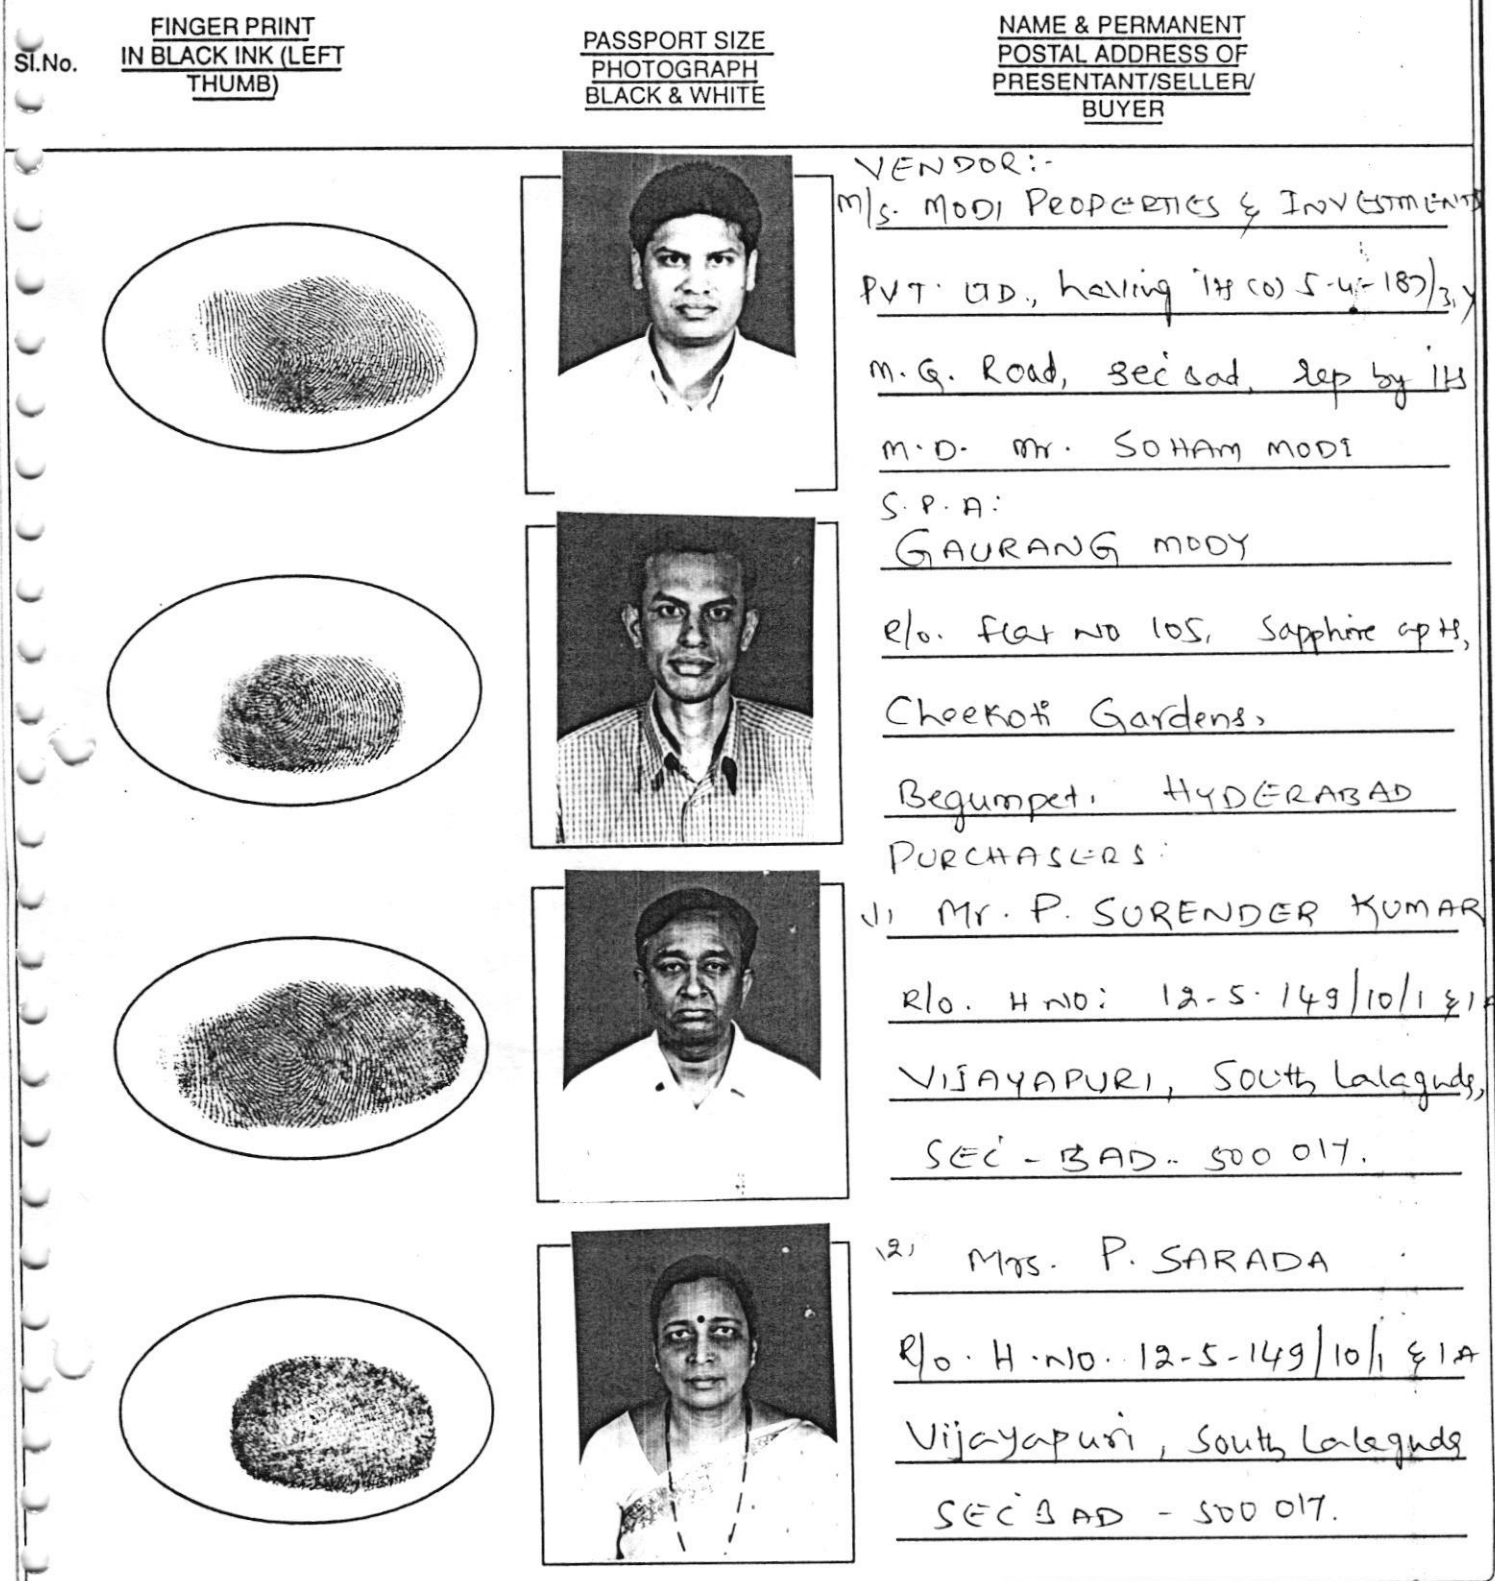 Sl.No.
FINGER PRINT
IN BLACK INK (LEFT
THUMB)
PASSPORT SIZE
PHOTOGRAPH
BLACK & WHITE
NAME & PERMANENT
POSTAL ADDRESS OF
PRESENTANT/SELLER/
BUYER
VENDOR:-
M/s. MODI PROPERTIES & INVESTMENTS
PVT. LTD., having its (O) 5-4-187/3,4
M.G. Road, Sec'bad, rep by its
M.D. Mr. SOHAM MODI
S.P.A:
GAURANG MODY
R/o. Flat No 105, Sapphire apts,
Cheekoti Gardens,
Begumpet, HYDERABAD
PURCHASERS:
(1) Mr. P. SURENDER KUMAR
R/o. H NO: 12-5-149/10/1 & 1A
VIJAYAPURI, South Lalaguda,
SEC'-BAD. 500 017.
(2) Mrs. P. SARADA
R/o. H.NO. 12-5-149/10/1 & 1A
Vijayapuri, South Lalaguda
SEC'BAD - 500 017.